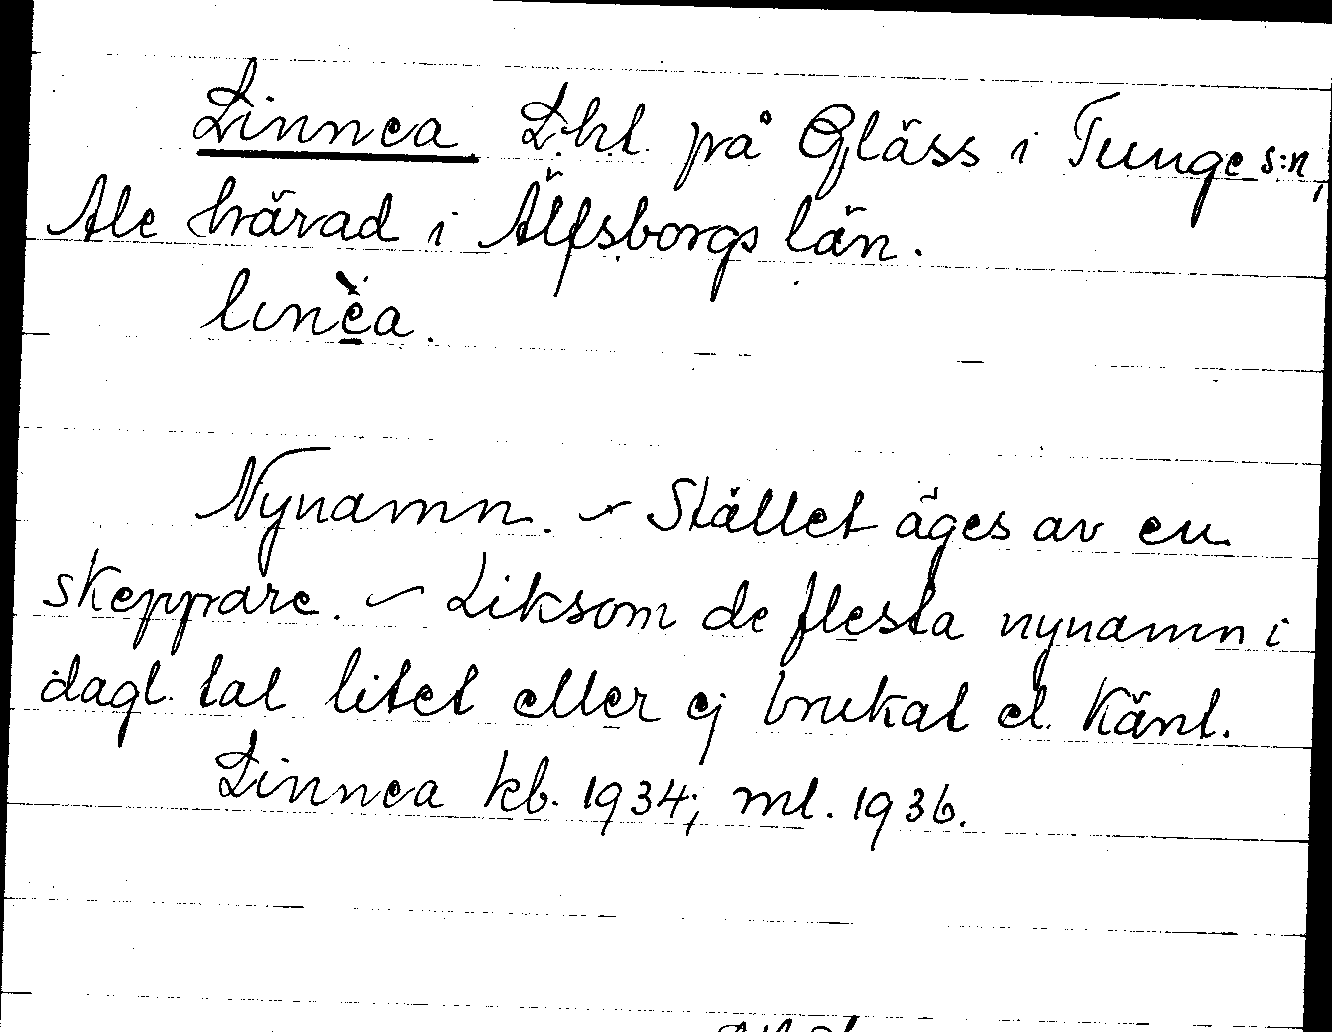 Linnea L:ht. på Gläss i Tunge s:n,
Ale härad i Älfsborgs län.
lınèa.
Nynamn. – Stället äges av en
skeppare. – Liksom de flesta nynamn i
dagl. tal litet eller ej brukat el. känt.
Linnea kb. 1934; ml. 1936.